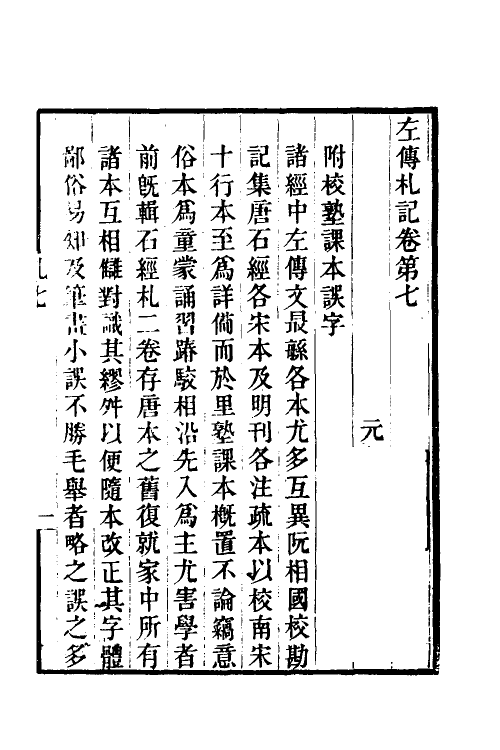 左傳札記卷第七
元
附校塾課本誤字
諸經中左傳文最繇各本尤多互異阮相國校勘
記集唐石經各宋本及明刊各注疏本以校南宋
十行本至爲詳備而於里塾課本槪置不論竊意
俗本爲童蒙誦習踳駁相沿先入爲主尤害學者
前旣輯石經札二卷存唐本之舊復就家中所有
諸本互相讎對識其繆舛以便隨本改正其字體
鄙俗易知及筆畫小誤不勝毛舉者略之誤之多
札七
一